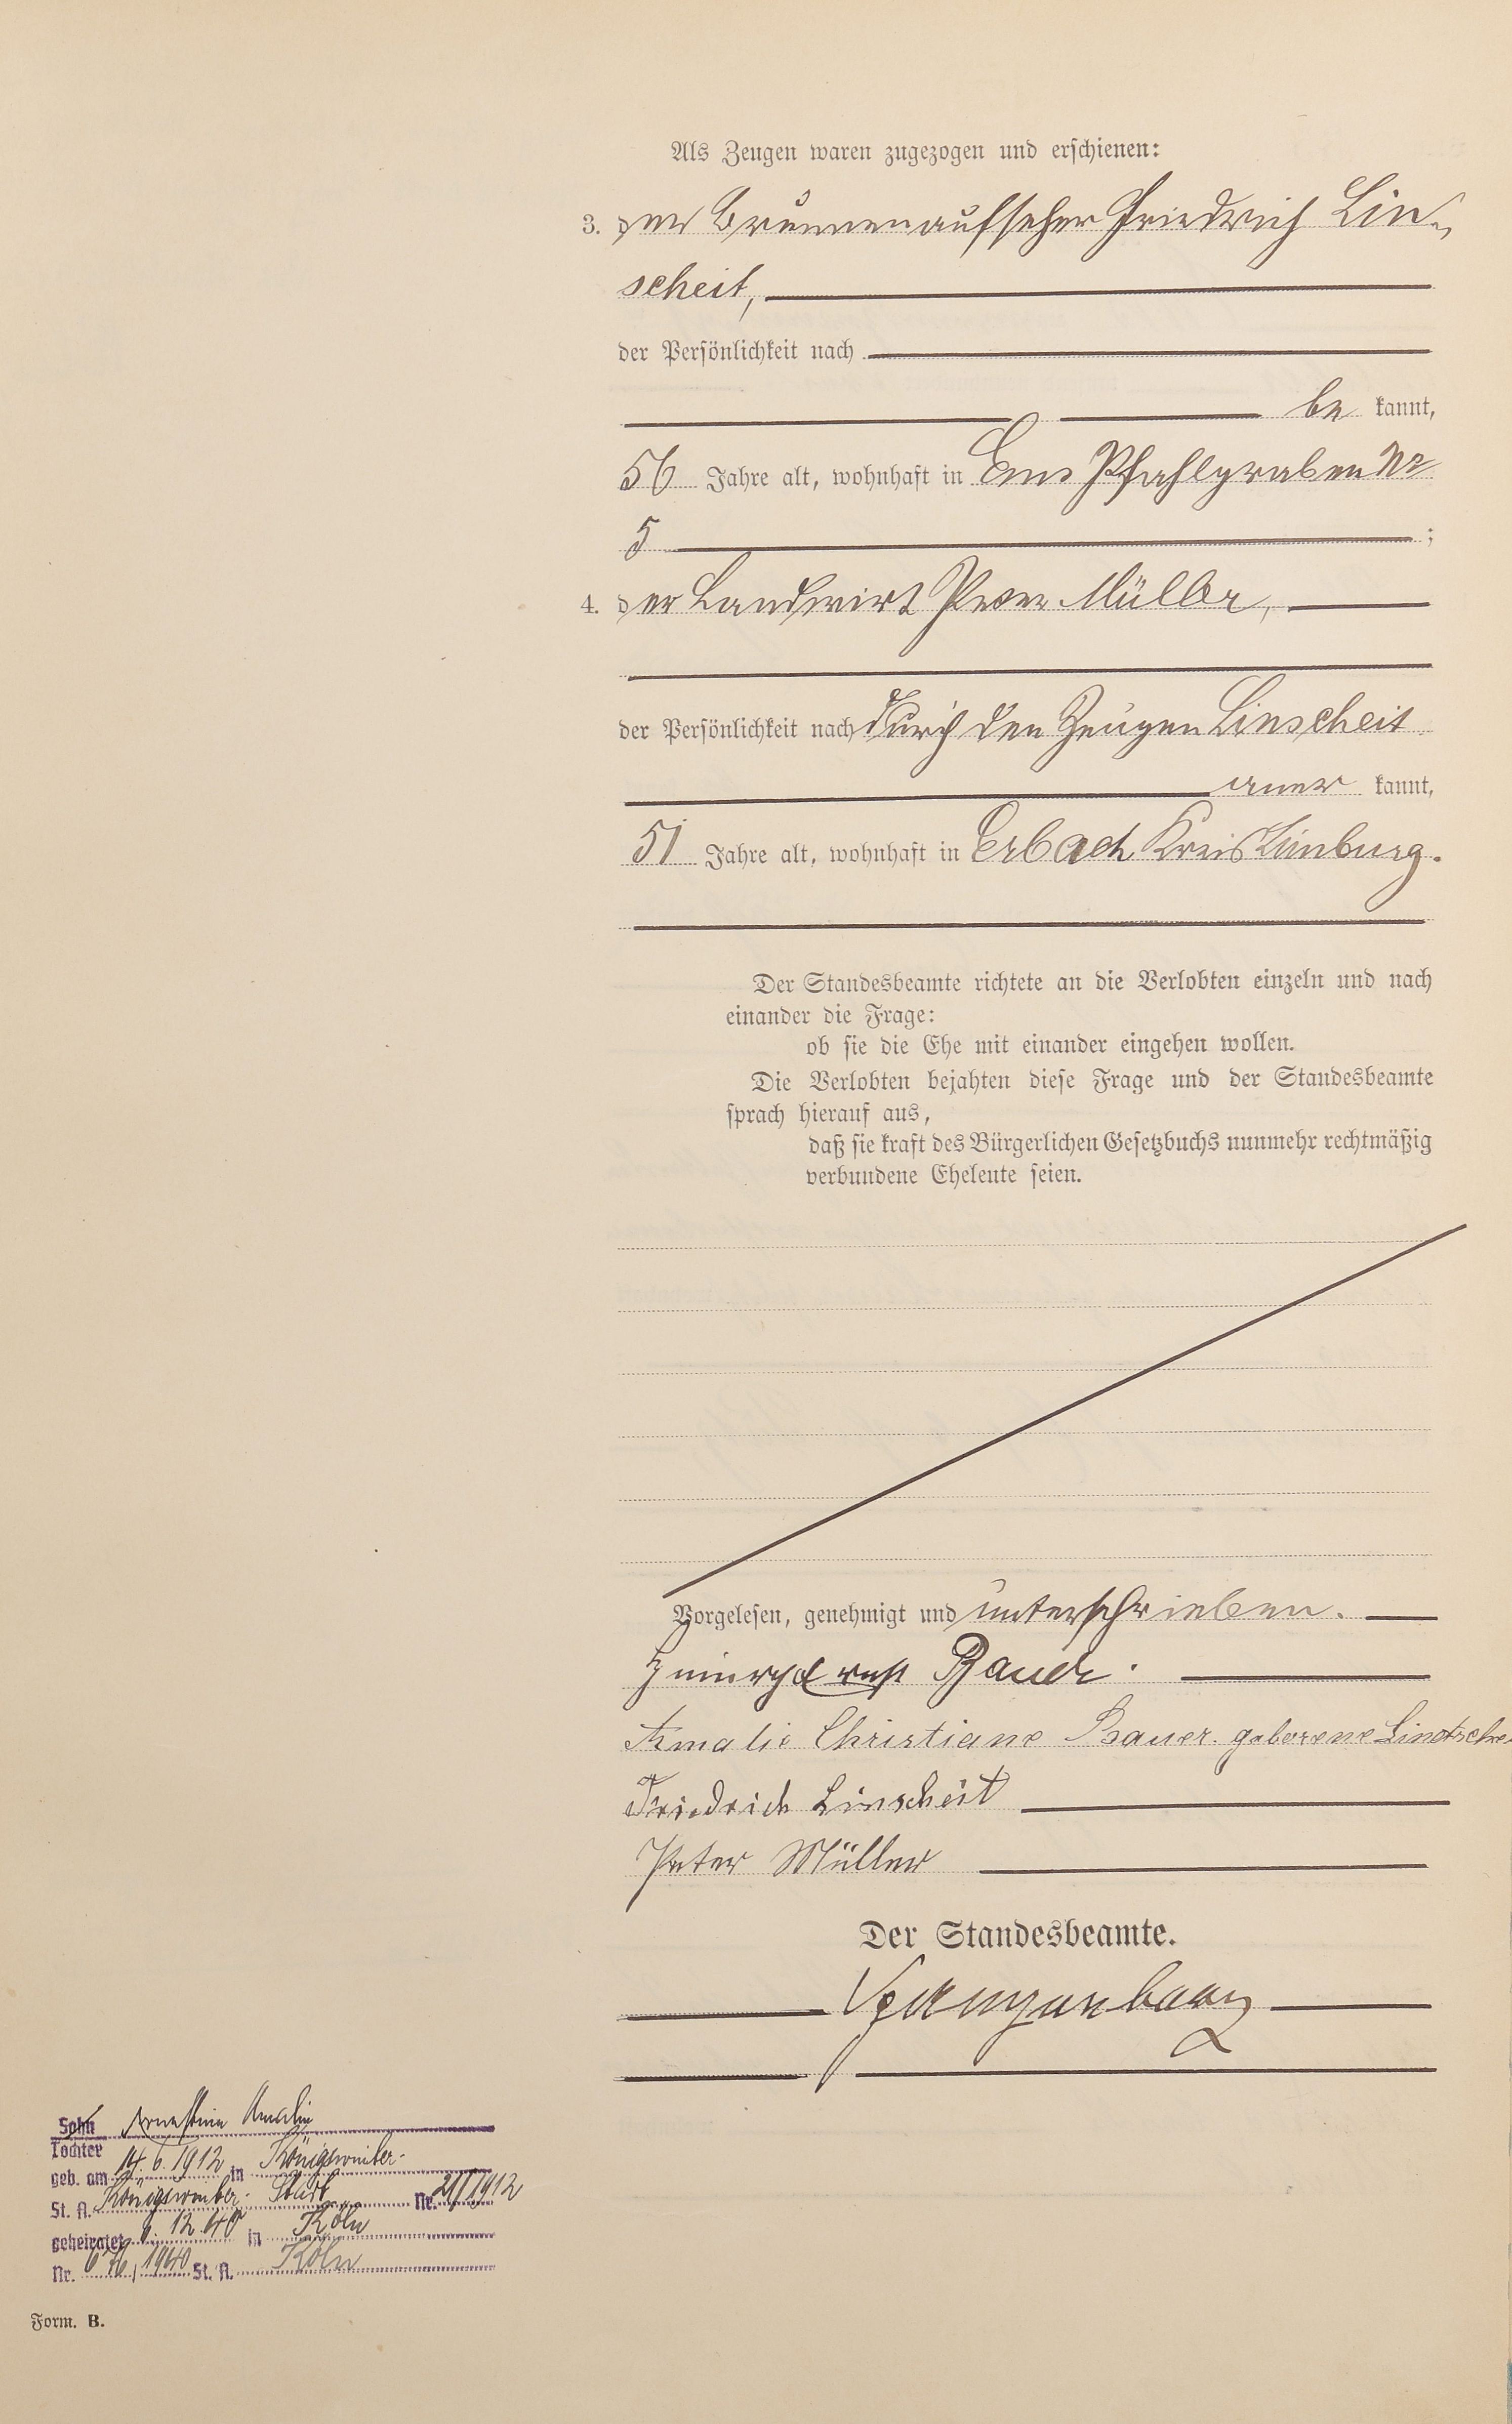 Als Zeugen waren zugezogen und erschienen:
3. der Brunnenaufseher Friedrich Lin-
scheit,
der Persönlichkeit nach
be kannt,
56 Jahre alt, wohnhaft in Ems Pfahlgraben No
5 ;
4. der Landwirt Peter Müller,
der Persönlichkeit nach durch den Zeugen Linscheit
aner kannt,
51 Jahre alt, wohnhaft in Erbach Kreis Limburg.
Der Standesbeamte richtete an die Verlobten einzeln und nach
einander die Frage:
ob sie die Ehe mit einander eingehen wollen.
Die Verlobten bejahten diese Frage und der Standesbeamte
sprach hierauf aus,
daß sie kraft des Bürgerlichen Gesetzbuchs nunmehr rechtmäßig
verbundene Eheleute seien.
Vorgelesen, genehmigt und unterschrieben.
Heinrich Ernst Bauer.
Amalie Christiane Bauer geborene
Friedrich Linscheit
Peter Müller
Der Standesbeamte.
Sohn Ernestine Amalie
Tochter
geb. am 14.6.1912 in Königswinter
St. A. Königswinter Stadt Nr. 21/1912
geheiratet 12.40 in Köln
Nr. 1940 St. A. Köln
Form. B.